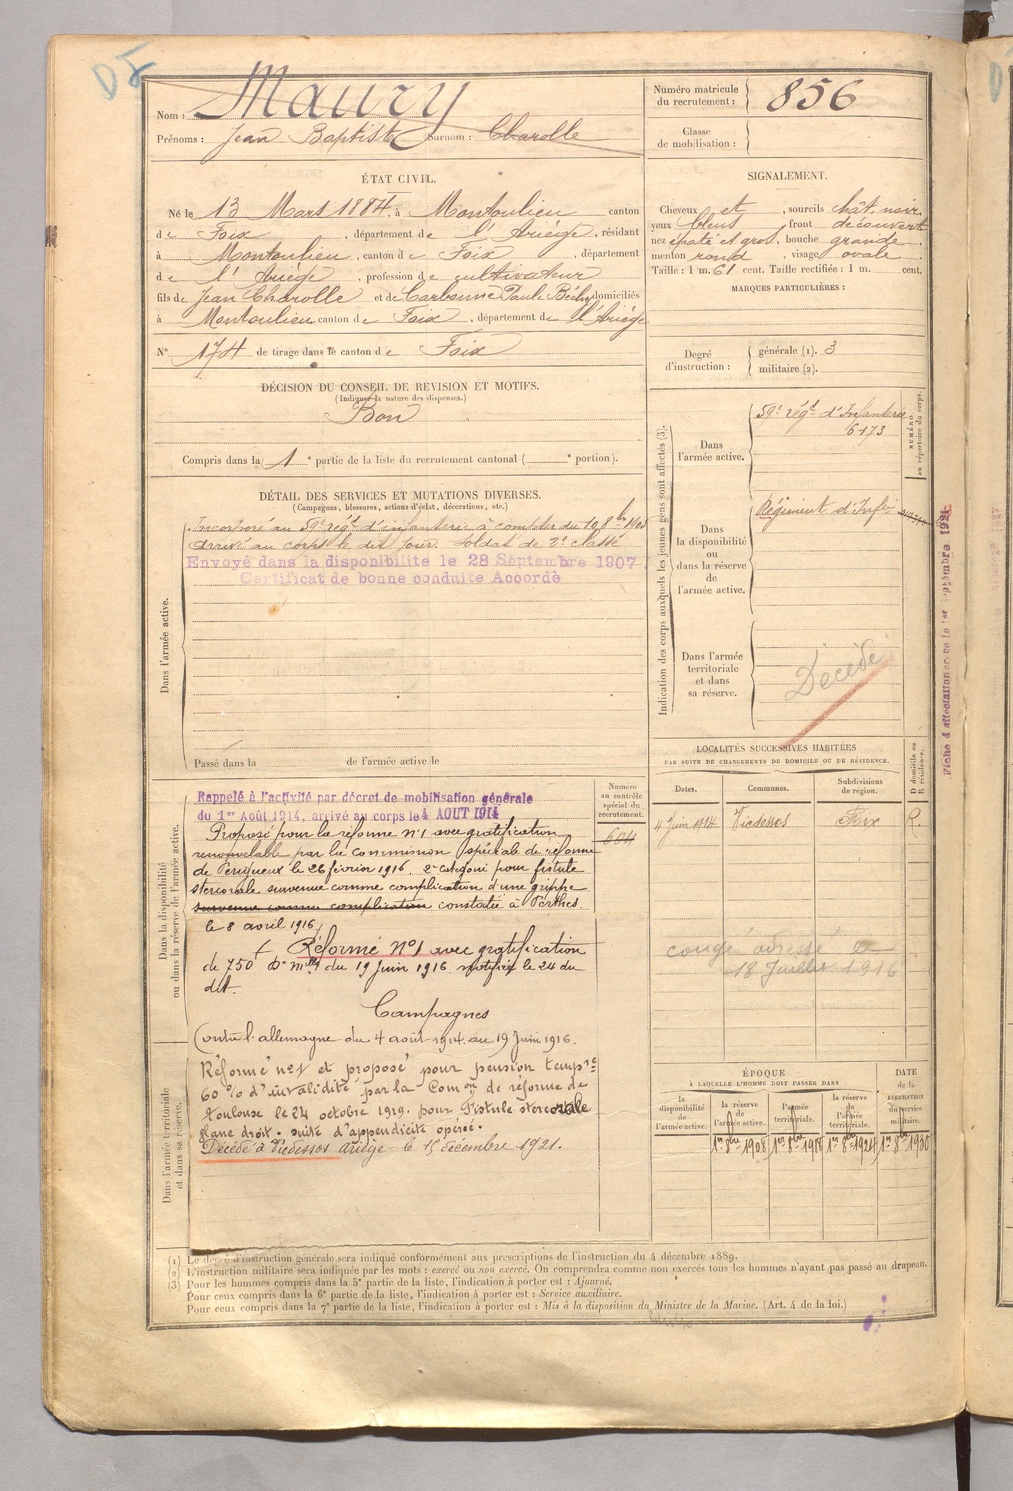 DE
Nom : Maury
Prénoms : Jean Baptiste Surnom : Charolle
Numéro matricule du recrutement : 856
Classe de mobilisation :
ÉTAT CIVIL.
Né le 13 Mars 1884, à Montoulieu canton
de Foix, département de l'Ariège, résidant
à Montoulieu, canton de Foix, département
de l'Ariège, profession de cultivateur
fils de Jean Charolle et de Carbonne Paule domiciliés
à Montoulieu canton de Foix, département de l'Ariège
N° 174 de tirage dans le canton de Foix
SIGNALEMENT.
Cheveux et, sourcils chât. noir
yeux bleus, front découvert
nez épaté et gros, bouche grande
menton rond, visage ovale
Taille : 1 m. 61 cent. Taille rectifiée : 1 m. cent.
MARQUES PARTICULIÈRES :
Degré d'instruction : générale (1). 3
militaire (2).
DÉCISION DU CONSEIL DE REVISION ET MOTIFS.
(Indiquer la nature des dispenses.)
Bon
Compris dans la 1e partie de la liste du recrutement cantonal ( e portion).
DÉTAIL DES SERVICES ET MUTATIONS DIVERSES.
(Campagnes, blessures, actions d'éclat, décorations, etc.)
Dans l'armée active.
Incorporé au 59e régt d'infanterie à compter du 10 8bre 1905
Arrivé au corps le dit jour. Soldat de 2e classe
Envoyé dans la disponibilité le 28 Septembre 1907
Certificat de bonne conduite Accordé
Passé dans la de l'armée active le
Indication des corps auxquels les jeunes gens sont affectés (3).
NUMÉRO au répertoire du corps.
Dans l'armée active.
59e régt d'Infanterie
6173
Dans la disponibilité ou dans la réserve de l'armée active.
Régiment d'Infie
Dans l'armée territoriale et dans sa réserve.
Décédé
Fiche d'affectation créée le 1er Septembre 1921
LOCALITÉS SUCCESSIVES HABITÉES
PAR SUITE DE CHANGEMENTS DE DOMICILE OU DE RÉSIDENCE.
Dates. Communes. Subdivisions de région. D domicile ou R résidence.
4 Juin 1914 Vicdessos Foix R.
congé adressé le
18 Juillet 1916
Dans la disponibilité ou dans la réserve de l'armée active.
Numéro au contrôle spécial du recrutement.
604
Rappelé à l'activité par décret de mobilisation générale
du 1er Août 1914, arrivé au corps le 4 AOUT 1914
Proposé pour la réforme n°1 avec gratification
renouvelable par la commission spéciale de réforme
de Périgueux le 26 février 1916. 2e catégorie pour fistule
stercorale survenue comme complication d'une grippe
survenue comme complication constatée à Perthes.
le 8 avril 1916
Réformé N°1 avec gratification
de 750 D. mlle du 19 Juin 1916. notifié le 24 du
dit.
Campagnes
Contre l'allemagne du 4 août 1914 au 19 Juin 1916.
Dans l'armée territoriale et dans sa réserve.
Réformé n°1 et proposé pour pension tempre
60 % d'invalidité par la Comon de réforme de
Toulouse le 24 octobre 1919. pour Fistule stercorale
flanc droit. suite d'appendicite opérée.
Décédé à Vicdessos Ariège le 15 décembre 1921.
ÉPOQUE
À LAQUELLE L'HOMME DOIT PASSER DANS
DATE de la LIBÉRATION du service militaire.
la disponibilité de l'armée active. la réserve de l'armée active. l'armée territoriale. la réserve de l'armée territoriale.
1er 8bre 1908 1er 8bre 1918 1er 8bre 1924 1er 8bre 1930
(1) Le degré d'instruction générale sera indiqué conformément aux prescriptions de l'instruction du 4 décembre 1889.
(2) L'instruction militaire sera indiquée par les mots : exercé ou non exercé. On comprendra comme non exercés tous les hommes n'ayant pas passé au drapeau.
(3) Pour les hommes compris dans la 5e partie de la liste, l'indication à porter est : Ajourné.
Pour ceux compris dans la 6e partie de la liste, l'indication à porter est : Service auxiliaire.
Pour ceux compris dans la 7e partie de la liste, l'indication à porter est : Mis à la disposition du Ministre de la Marine. (Art. 4 de la loi.)